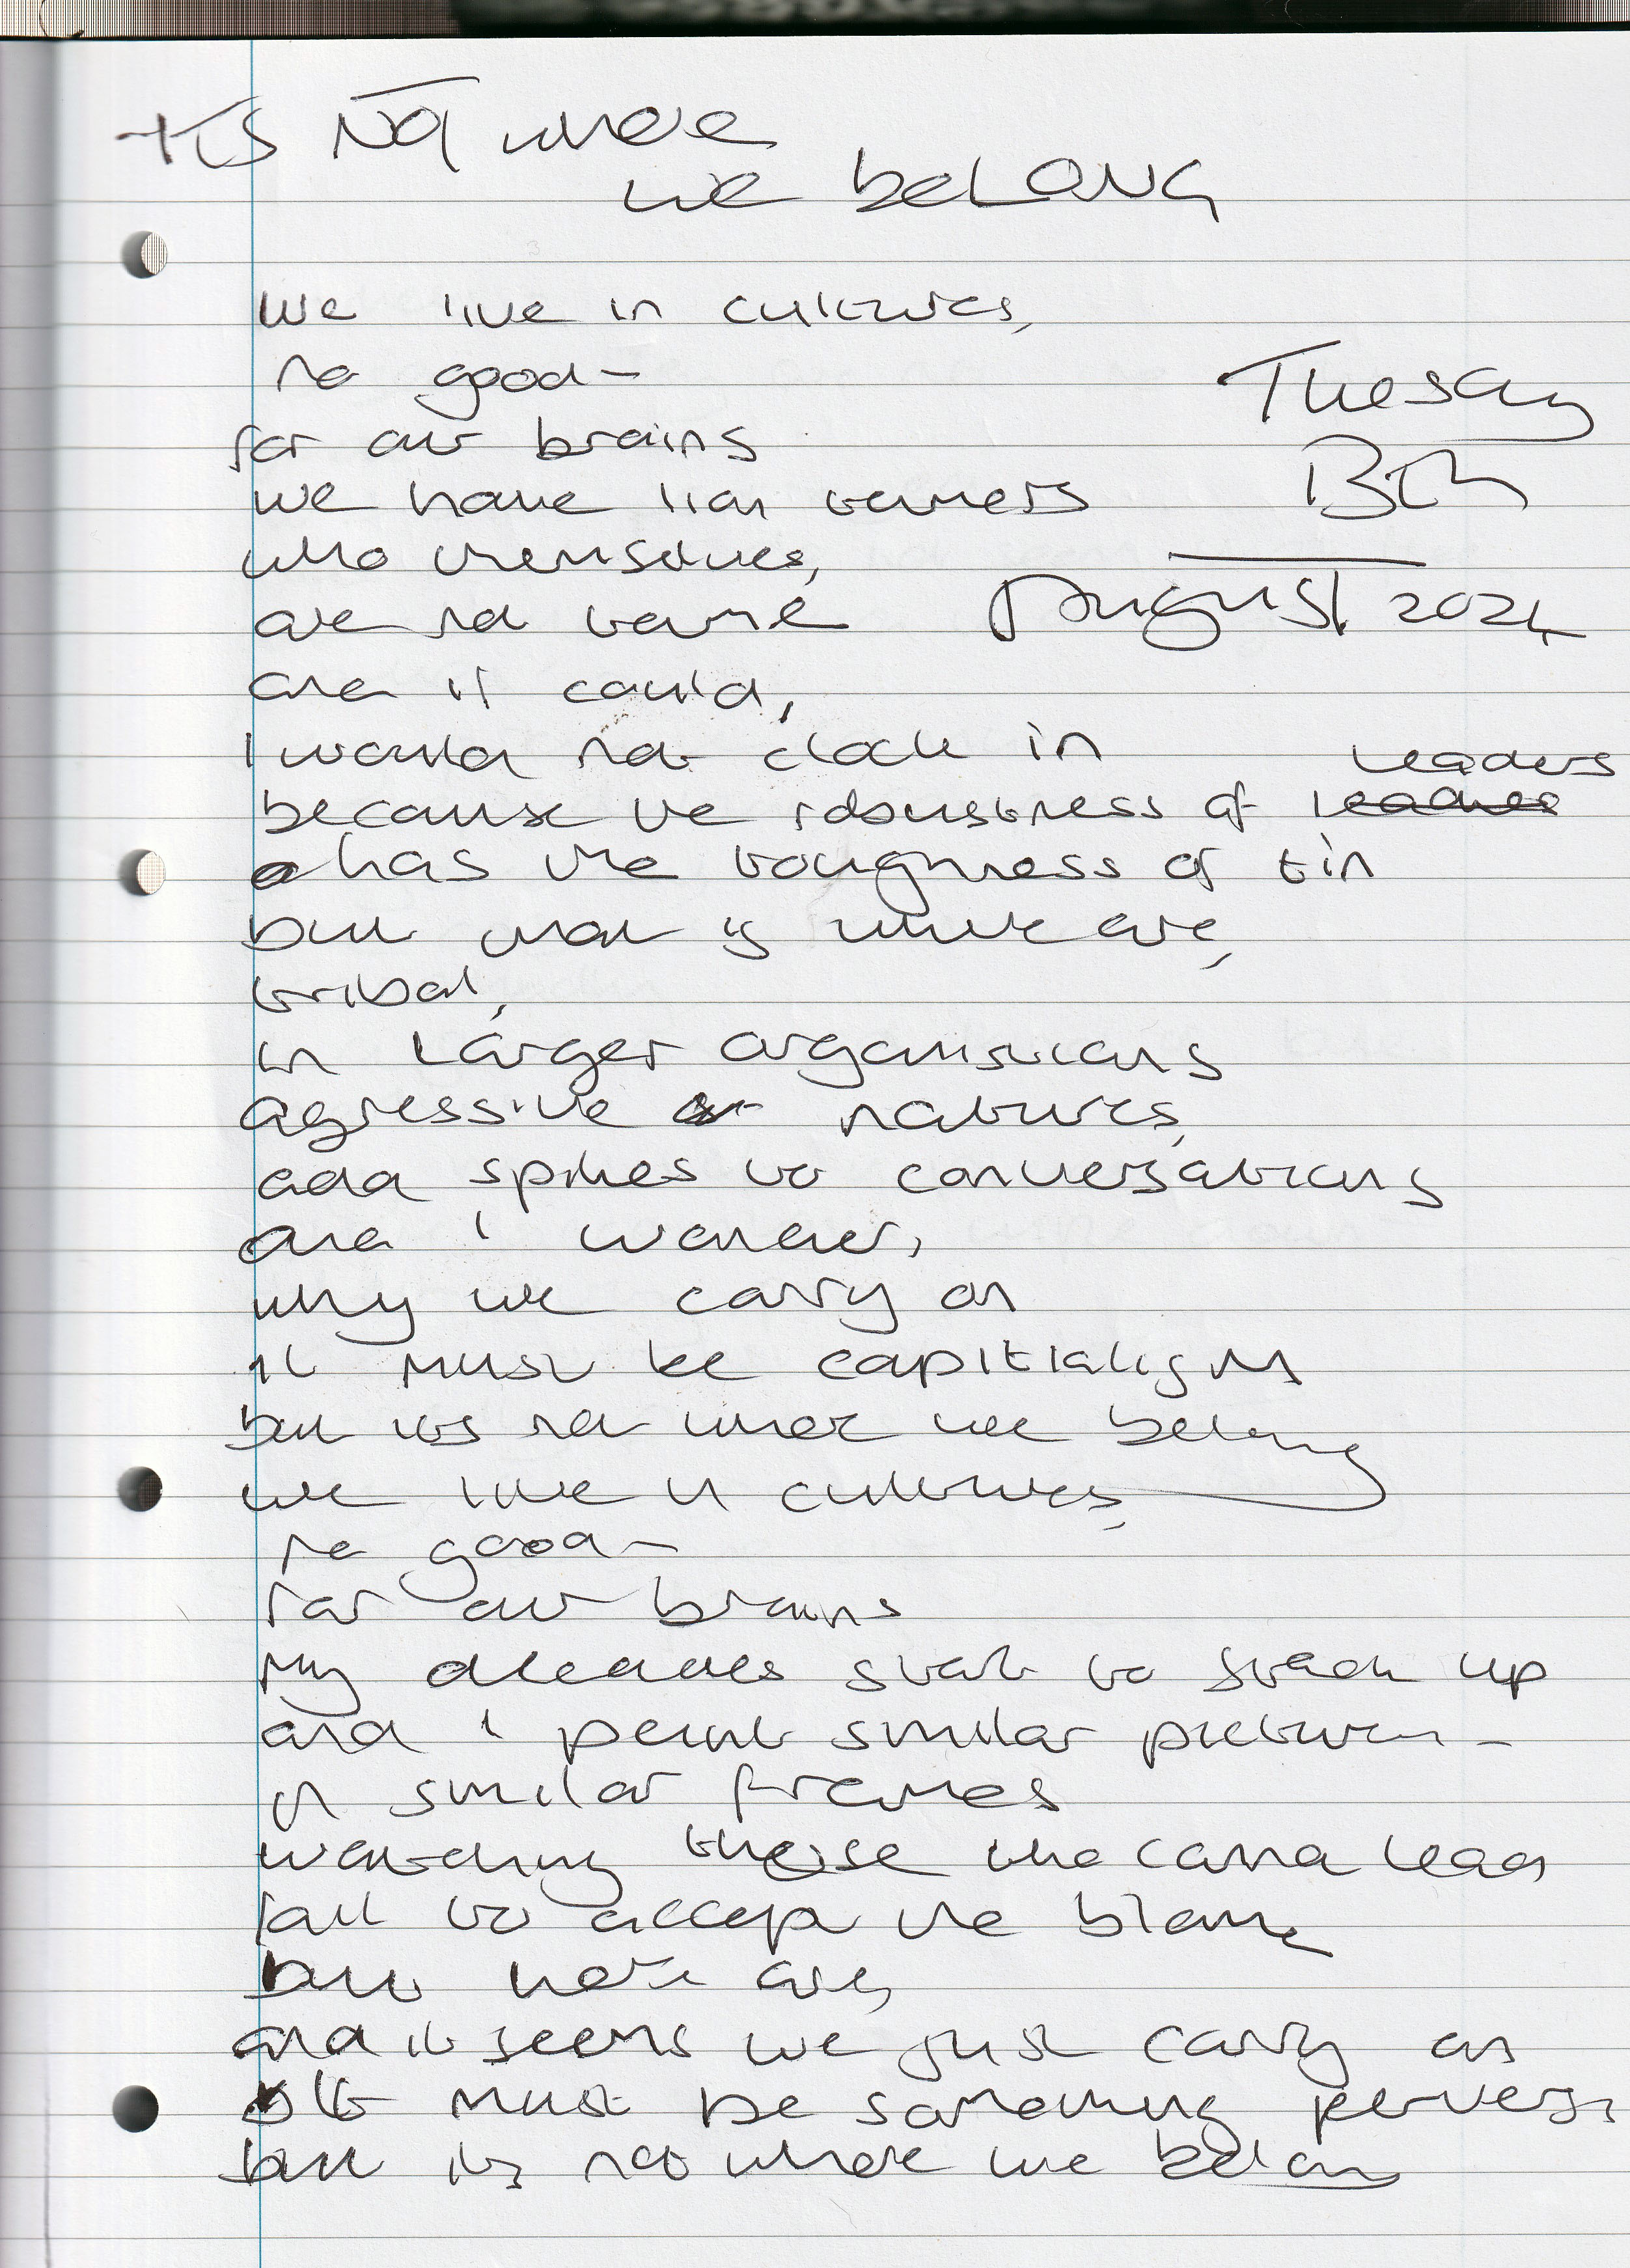 its Not where
we beLONG
we live in cultures,
no good-
Tuesday
for our brains
13th
we have lion tamers
who themselves,
August 2024
are not tame
and if could,
I would not clock in
leaders
because the robustness of
has the toughness of tin
but that is where are,
tribal,
in Larger organisations
agressive natures,
add spikes to conversations
and i wonder,
why we carry on
it must be capitialism
but its not where we belong
we live in cultures,
no good-
for our brains
My start to stack up
and i paint similar pictures-
in similar frames
watching those who cannot lead
fail to accept the blame
but here are,
and it seems we just carry on
it must be something perverse,
but its not where we belong